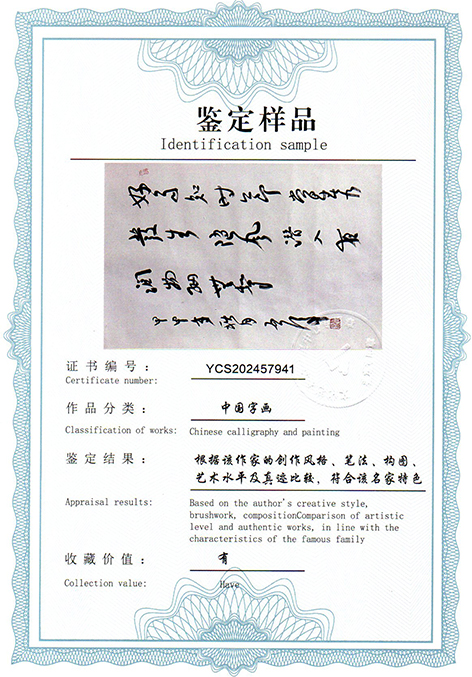 鉴定样品
Identification sample
好雨知时节 当春乃
发生 随风潜入夜
润物细无声
证书编号：
YCS202457941
Certificate number:
作品分类：
中国字画
Classification of works:
Chinese calligraphy and painting
鉴定结果：
根据该作家的创作风格、笔法、构图、
艺术水平及真迹比较，符合该名家特色
Appraisal results:
Based on the author's creative style,
brushwork, compositionComparison of artistic
level and authentic works, in line with the
characteristics of the famous family
收藏价值：
有
Collection value:
Have